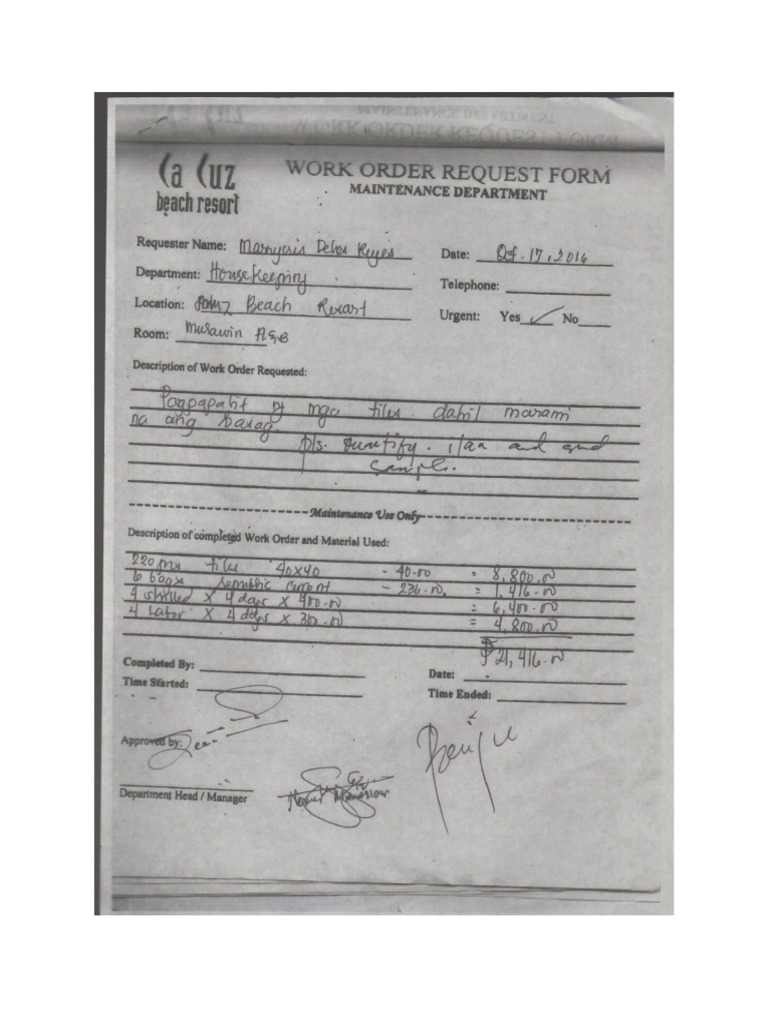 La Luz
beach resort
WORK ORDER REQUEST FORM
MAINTENANCE DEPARTMENT
Requester Name: Marrycris Delos Reyes
Date: Oct. 17, 2016
Department: Housekeeping
Telephone:
Location: Beach Resort
Urgent: Yes ✓ No
Room: A&B
Description of Work Order Requested:
Pagpapalit ng mga tiles dahil marami
na ang basag.
pls. quantify. and send
sample.
Maintenance Use Only
Description of completed Work Order and Material Used:
220 pcs tiles 40x40 - 40.00 = 8,800.00
6 bags cement - 236.00 = 1,416.00
4 skilled x 4 days x 400.00 = 6,400.00
4 Labor x 4 days x 300.00 = 4,800.00
21,416.00
Completed By:
Date:
Time Started:
Time Ended:
Approved by:
Department Head / Manager